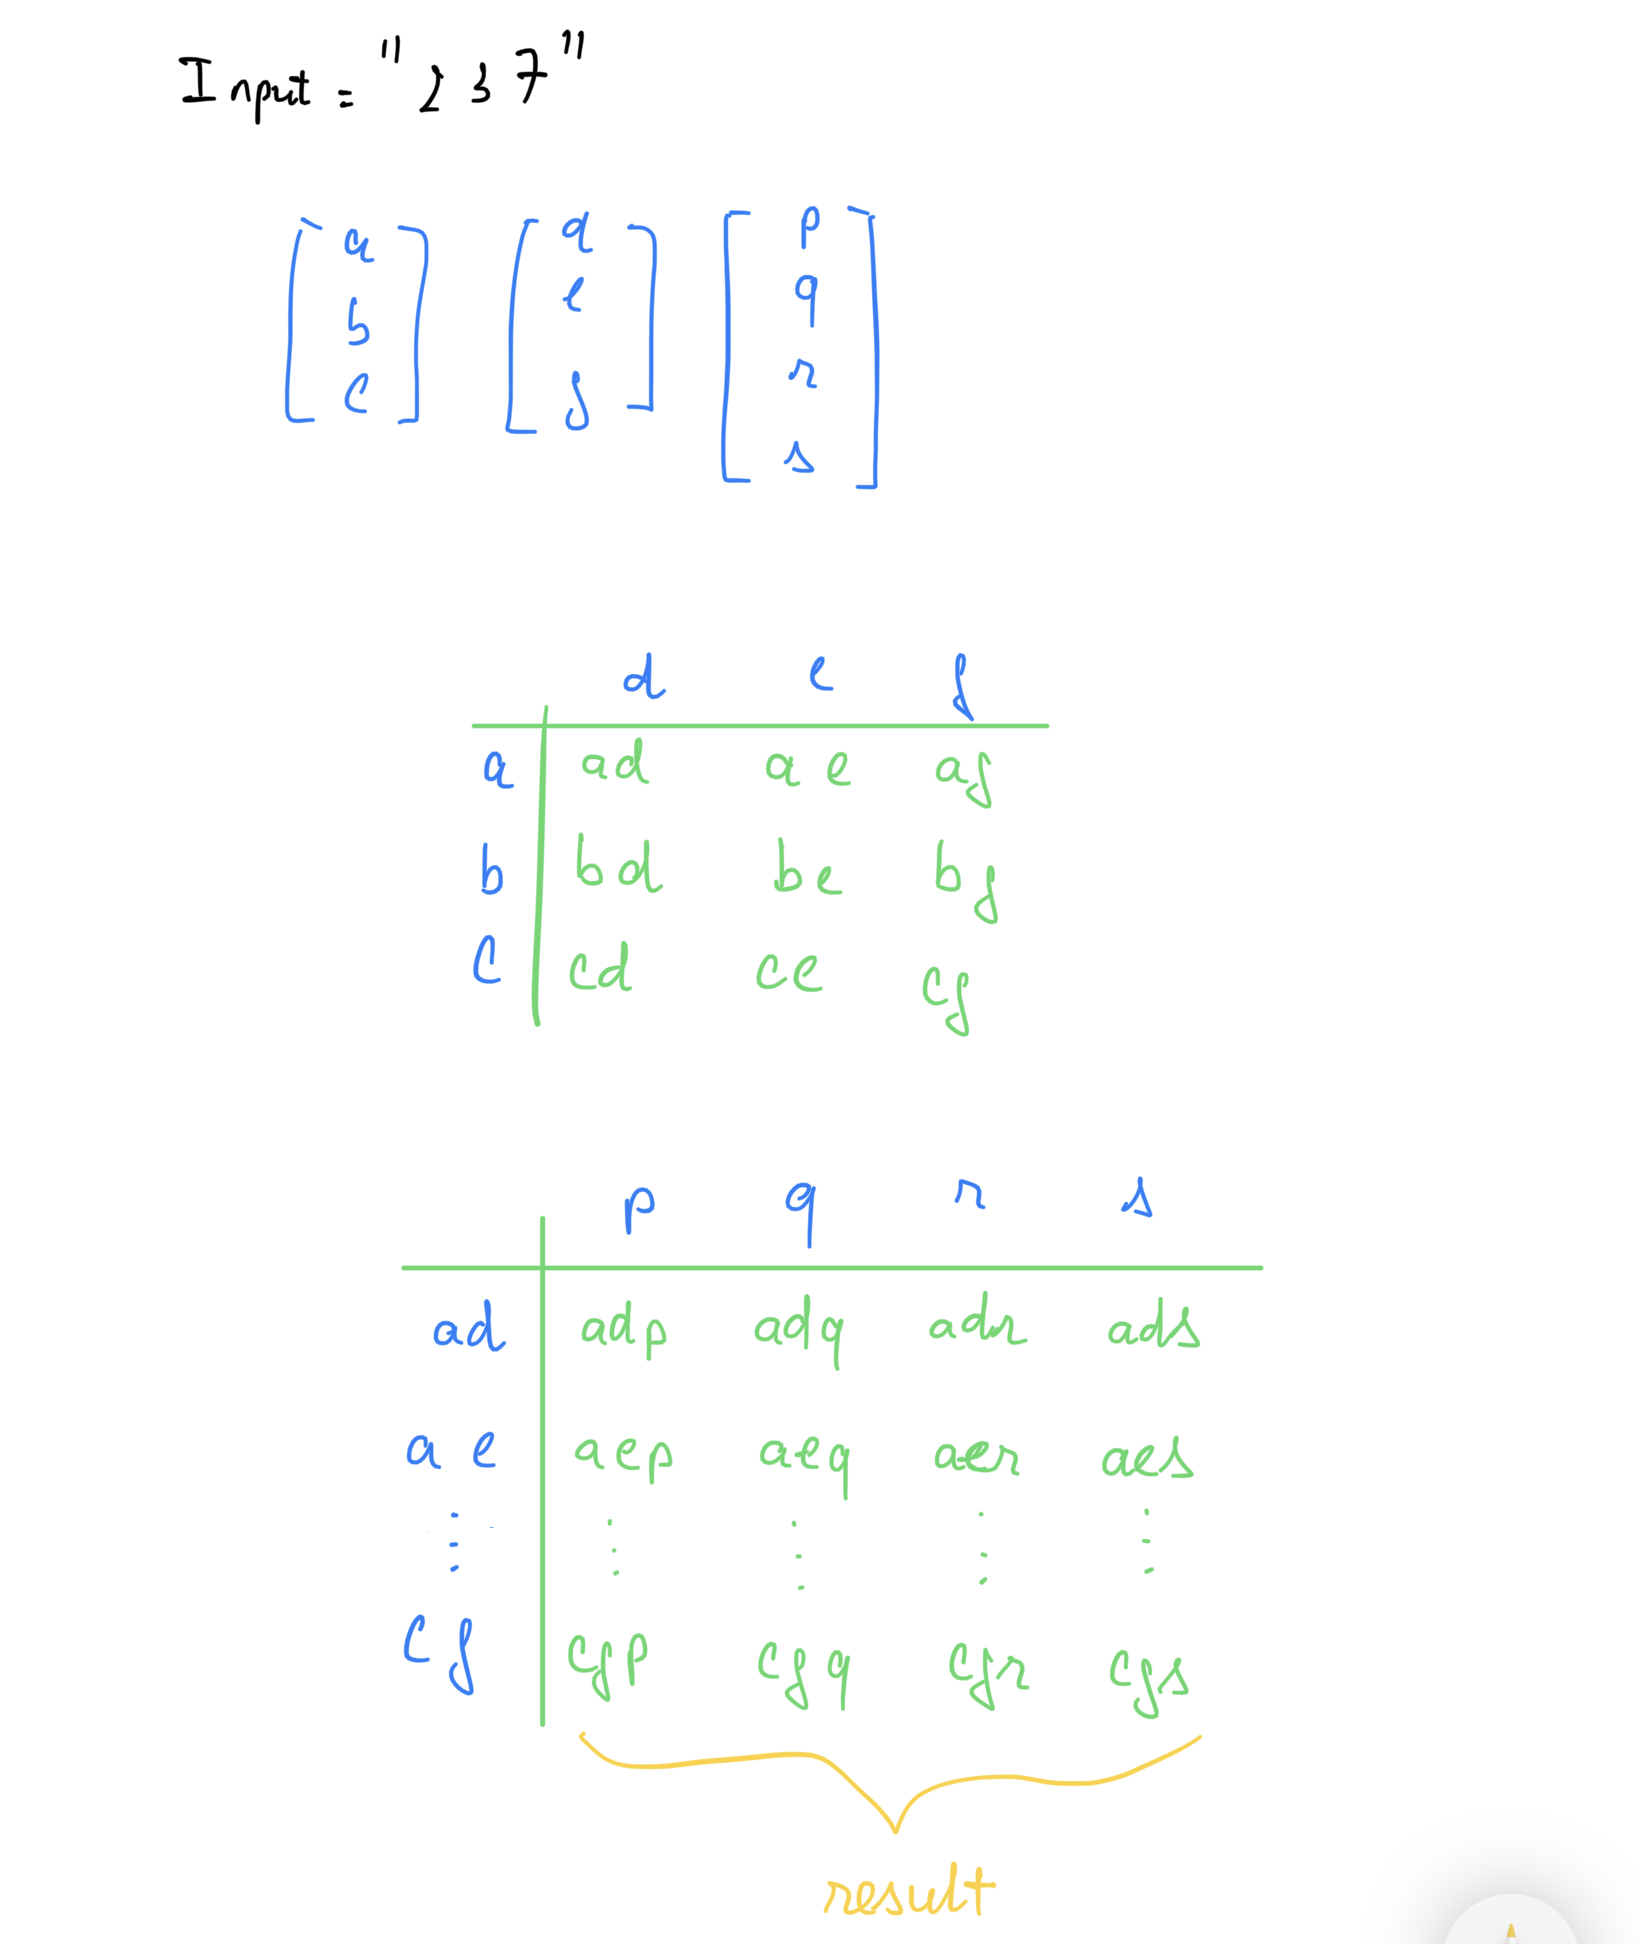 Input = "237"
a d p
b e q
c f r
s
d e f
a ad ae af
b bd be bf
c cd ce cf
p q r s
ad adp adq adr ads
ae aep aeq aer aes
⋮ ⋮ ⋮ ⋮ ⋮
cf cfp cfq cfr cfs
result